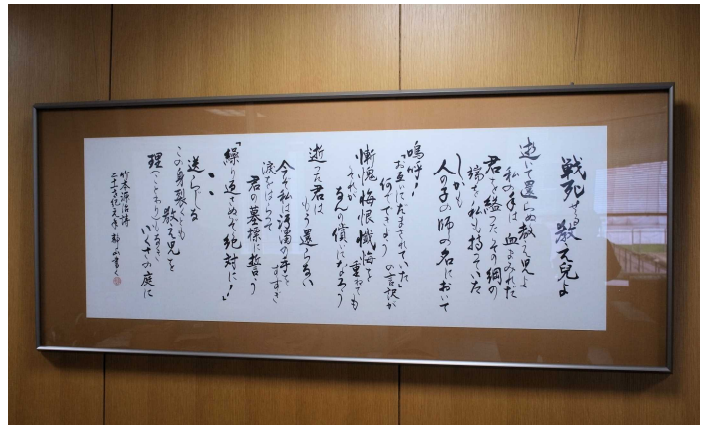 戦死せる教え兒よ
逝いて還らぬ教え兒よ
私の手は血まみれだ
君を縊ったその綱の
端を私も持っていた
しかも
人の子の師の名において
嗚呼!
「お互いにだまされていた」
の言訳が
何でできよう
慚愧 悔恨 懺悔を
重ねても
それが
なんの償いになろう
逝った君は
もう還らない
今ぞ私は汚濁の手を
すすぎ
涙をはらって
君の墓標に誓う
「繰り返さぬぞ絶対に!」
送らじな
この身裂くとも
教え児を
理(ことわり)もなき
いくさの庭に
竹本源治詩